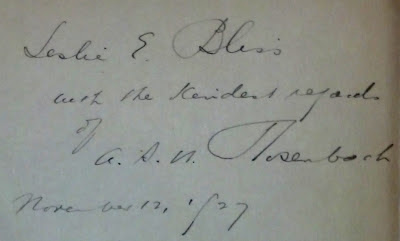 Leslie E. Bliss
with the kindest regards
of
A. S. W. Rosenbach
November 12, 1927